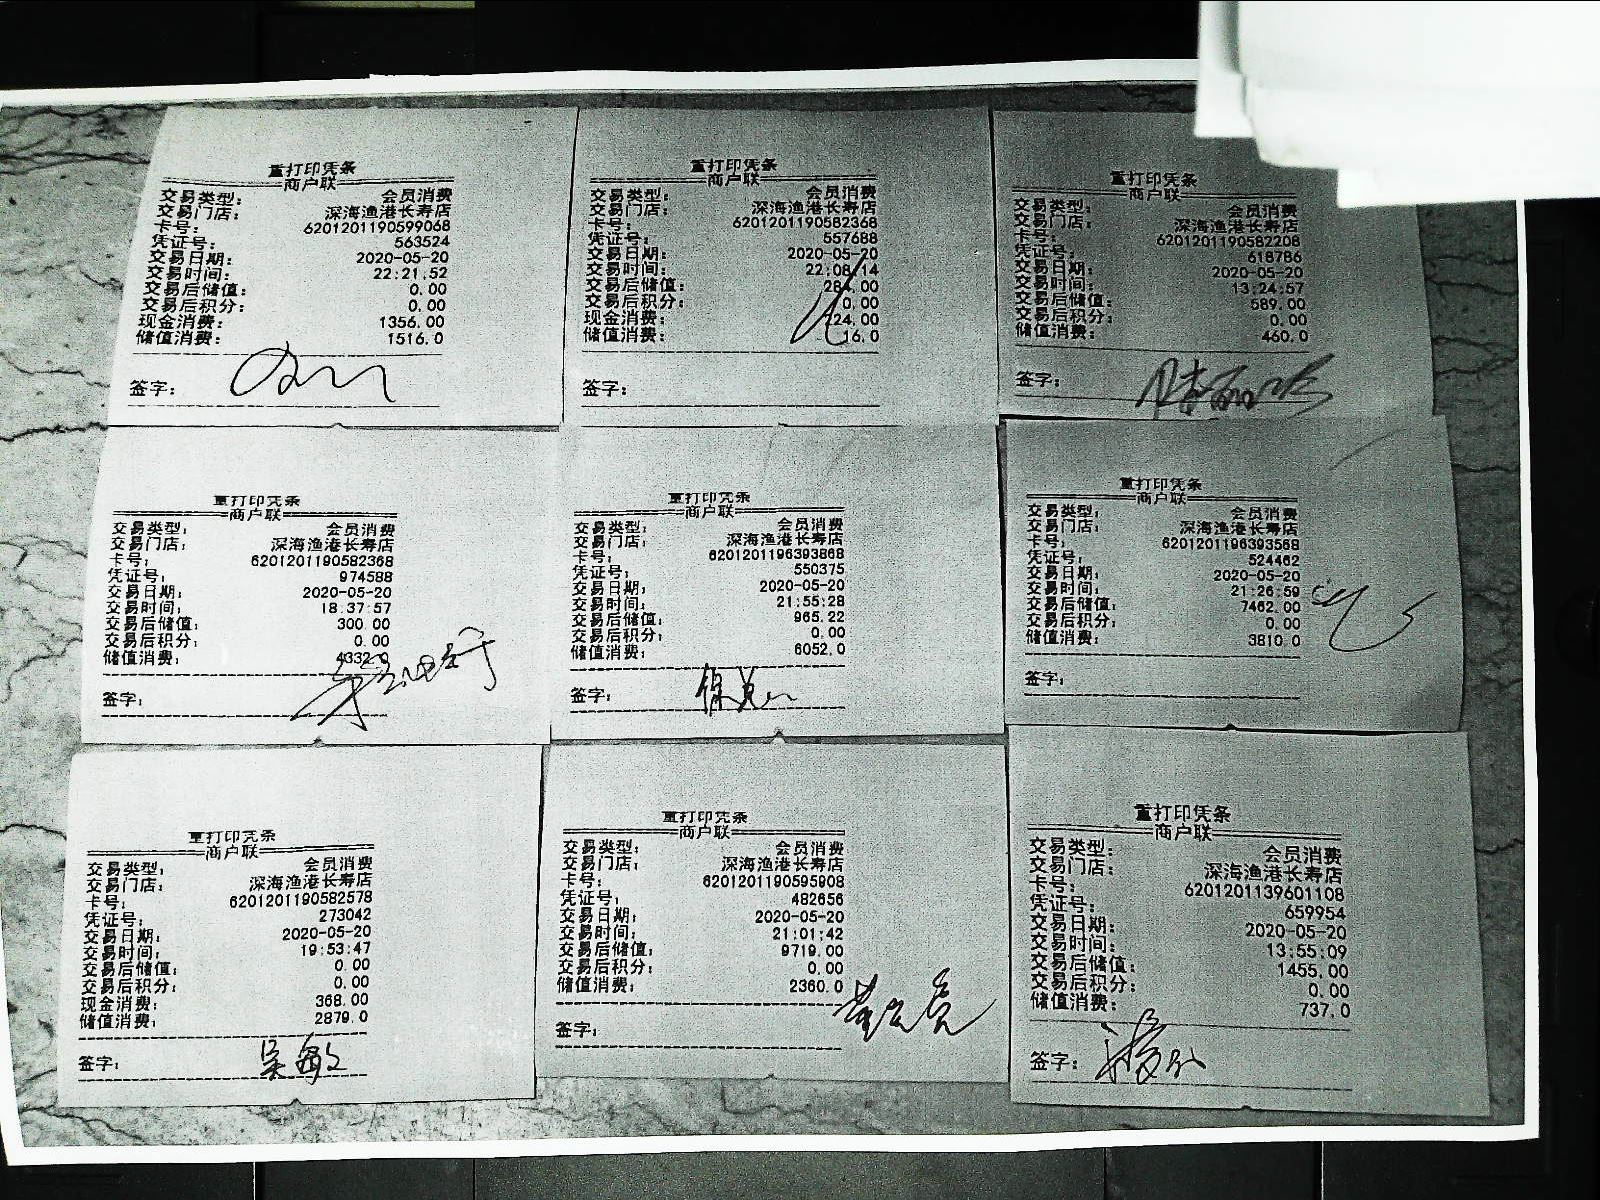 重打印凭条
商户联
交易类型: 会员消费
交易门店: 深海渔港长寿店
卡号: 6201201190599068
凭证号: 563524
交易日期: 2020-05-20
交易时间: 22:21:52
交易后储值: 0.00
交易后积分: 0.00
现金消费: 1356.00
储值消费: 1516.0
签字:
重打印凭条
商户联
交易类型: 会员消费
交易门店: 深海渔港长寿店
卡号: 6201201190582368
凭证号: 557688
交易日期: 2020-05-20
交易时间: 22:08:14
交易后储值:
交易后积分: 0.00
现金消费:
储值消费:
签字:
重打印凭条
商户联
交易类型: 会员消费
交易门店: 深海渔港长寿店
卡号: 6201201190582208
凭证号: 618786
交易日期: 2020-05-20
交易时间: 13:24:57
交易后储值: 589.00
交易后积分: 0.00
储值消费: 460.0
签字:
重打印凭条
商户联
交易类型: 会员消费
交易门店: 深海渔港长寿店
卡号: 6201201190582368
凭证号: 974588
交易日期: 2020-05-20
交易时间: 18:37:57
交易后储值: 300.00
交易后积分: 0.00
储值消费: 4332.0
签字:
重打印凭条
商户联
交易类型: 会员消费
交易门店: 深海渔港长寿店
卡号: 6201201196393868
凭证号: 550375
交易日期: 2020-05-20
交易时间: 21:55:28
交易后储值: 965.22
交易后积分: 0.00
储值消费: 6052.0
签字:
重打印凭条
商户联
交易类型: 会员消费
交易门店: 深海渔港长寿店
卡号: 6201201196393568
凭证号: 524462
交易日期: 2020-05-20
交易时间: 21:26:59
交易后储值: 7462.00
交易后积分: 0.00
储值消费: 3810.0
签字:
重打印凭条
商户联
交易类型: 会员消费
交易门店: 深海渔港长寿店
卡号: 6201201190582578
凭证号: 273042
交易日期: 2020-05-20
交易时间: 19:53:47
交易后储值: 0.00
交易后积分: 0.00
现金消费: 368.00
储值消费: 2879.0
签字: 吴敏
重打印凭条
商户联
交易类型: 会员消费
交易门店: 深海渔港长寿店
卡号: 6201201190595908
凭证号: 482656
交易日期: 2020-05-20
交易时间: 21:01:42
交易后储值: 9719.00
交易后积分: 0.00
储值消费: 2360.0
签字:
重打印凭条
商户联
交易类型: 会员消费
交易门店: 深海渔港长寿店
卡号: 6201201139601108
凭证号: 659954
交易日期: 2020-05-20
交易时间: 13:55:09
交易后储值: 1455.00
交易后积分: 0.00
储值消费: 737.0
签字: